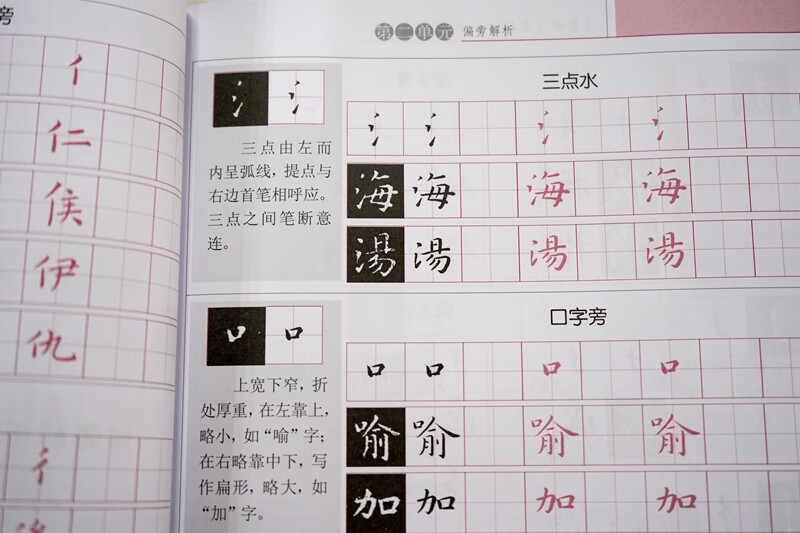 旁
亻
仁
侯
伊
仇
彳
第二单元 偏旁解析
氵 氵
三点由左而
内呈弧线，提点与
右边首笔相呼应。
三点之间笔断意
连。
三点水
氵 氵 氵 氵
海 海 海 海
湯 湯 湯 湯
口 口
上宽下窄，折
处厚重，在左靠上，
略小，如“喻”字；
在右略靠中下，写
作扁形，略大，如
“加”字。
口字旁
口 口 口 口
喻 喻 喻 喻
加 加 加 加